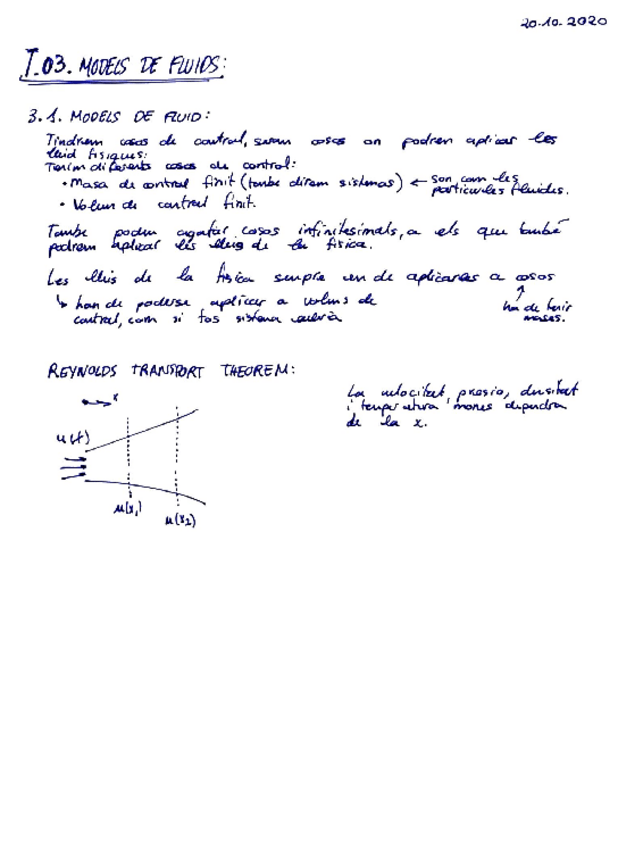 20.10.2020
T.03. MODELS DE FLUIDS:
3.1. MODELS DE FLUID:
Tindrem cosos de control, seran cosos on podrem aplicar les
lleid fisiques:
Tenim diferents cosos de control:
• Masa de control finit (tambe direm sistemas) ← son com les
particules fluides.
• Volum de control finit.
Tambe podem agafar cosos infinitesimals, a els que també
podrem aplicar les lleis de la fisica.
Les lleis de la fisica sempre en de aplicarles a cosos
↳ han de poderse aplicar a volums de
control, com si fos sistema
↑
han de tenir
masas.
REYNOLDS TRANSPORT THEOREM:
x
u(t)
u(x₁)
u(x₂)
La velocitat, presio, densitat
i temperatura mones dependra
de la x.